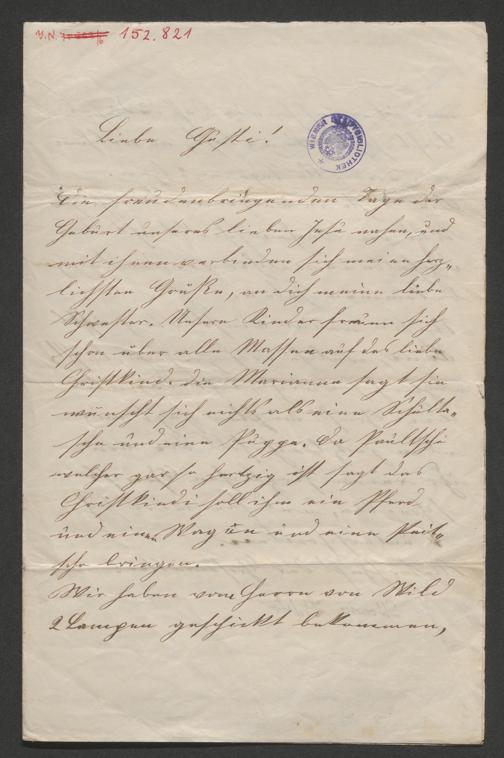 J.N. 152.821
WIENER STADTBIBLIOTHEK
Liebe Gusti!
Die freudenbringenden Tage der
Geburt unseres lieben Jesu nahen, und
mit ihnen verbinden sich meine herz„
lichsten Grüße, an dich meine liebe
Schwester. Unsere Kinder freuen sich
schon über alle Massen auf das liebe
Christkind. Die Marianna sagt sie
wünscht sich nichts als eine Schulta„
sche und eine Puppe. Da Paultschi
welcher gar so hertzig ist sagt das
Christkindi soll ihm ein Pferd
und einen Wagen und eine Peit„
sche bringen.
Wir haben vom Herrn von Wild
2 Lampen geschickt bekommen,